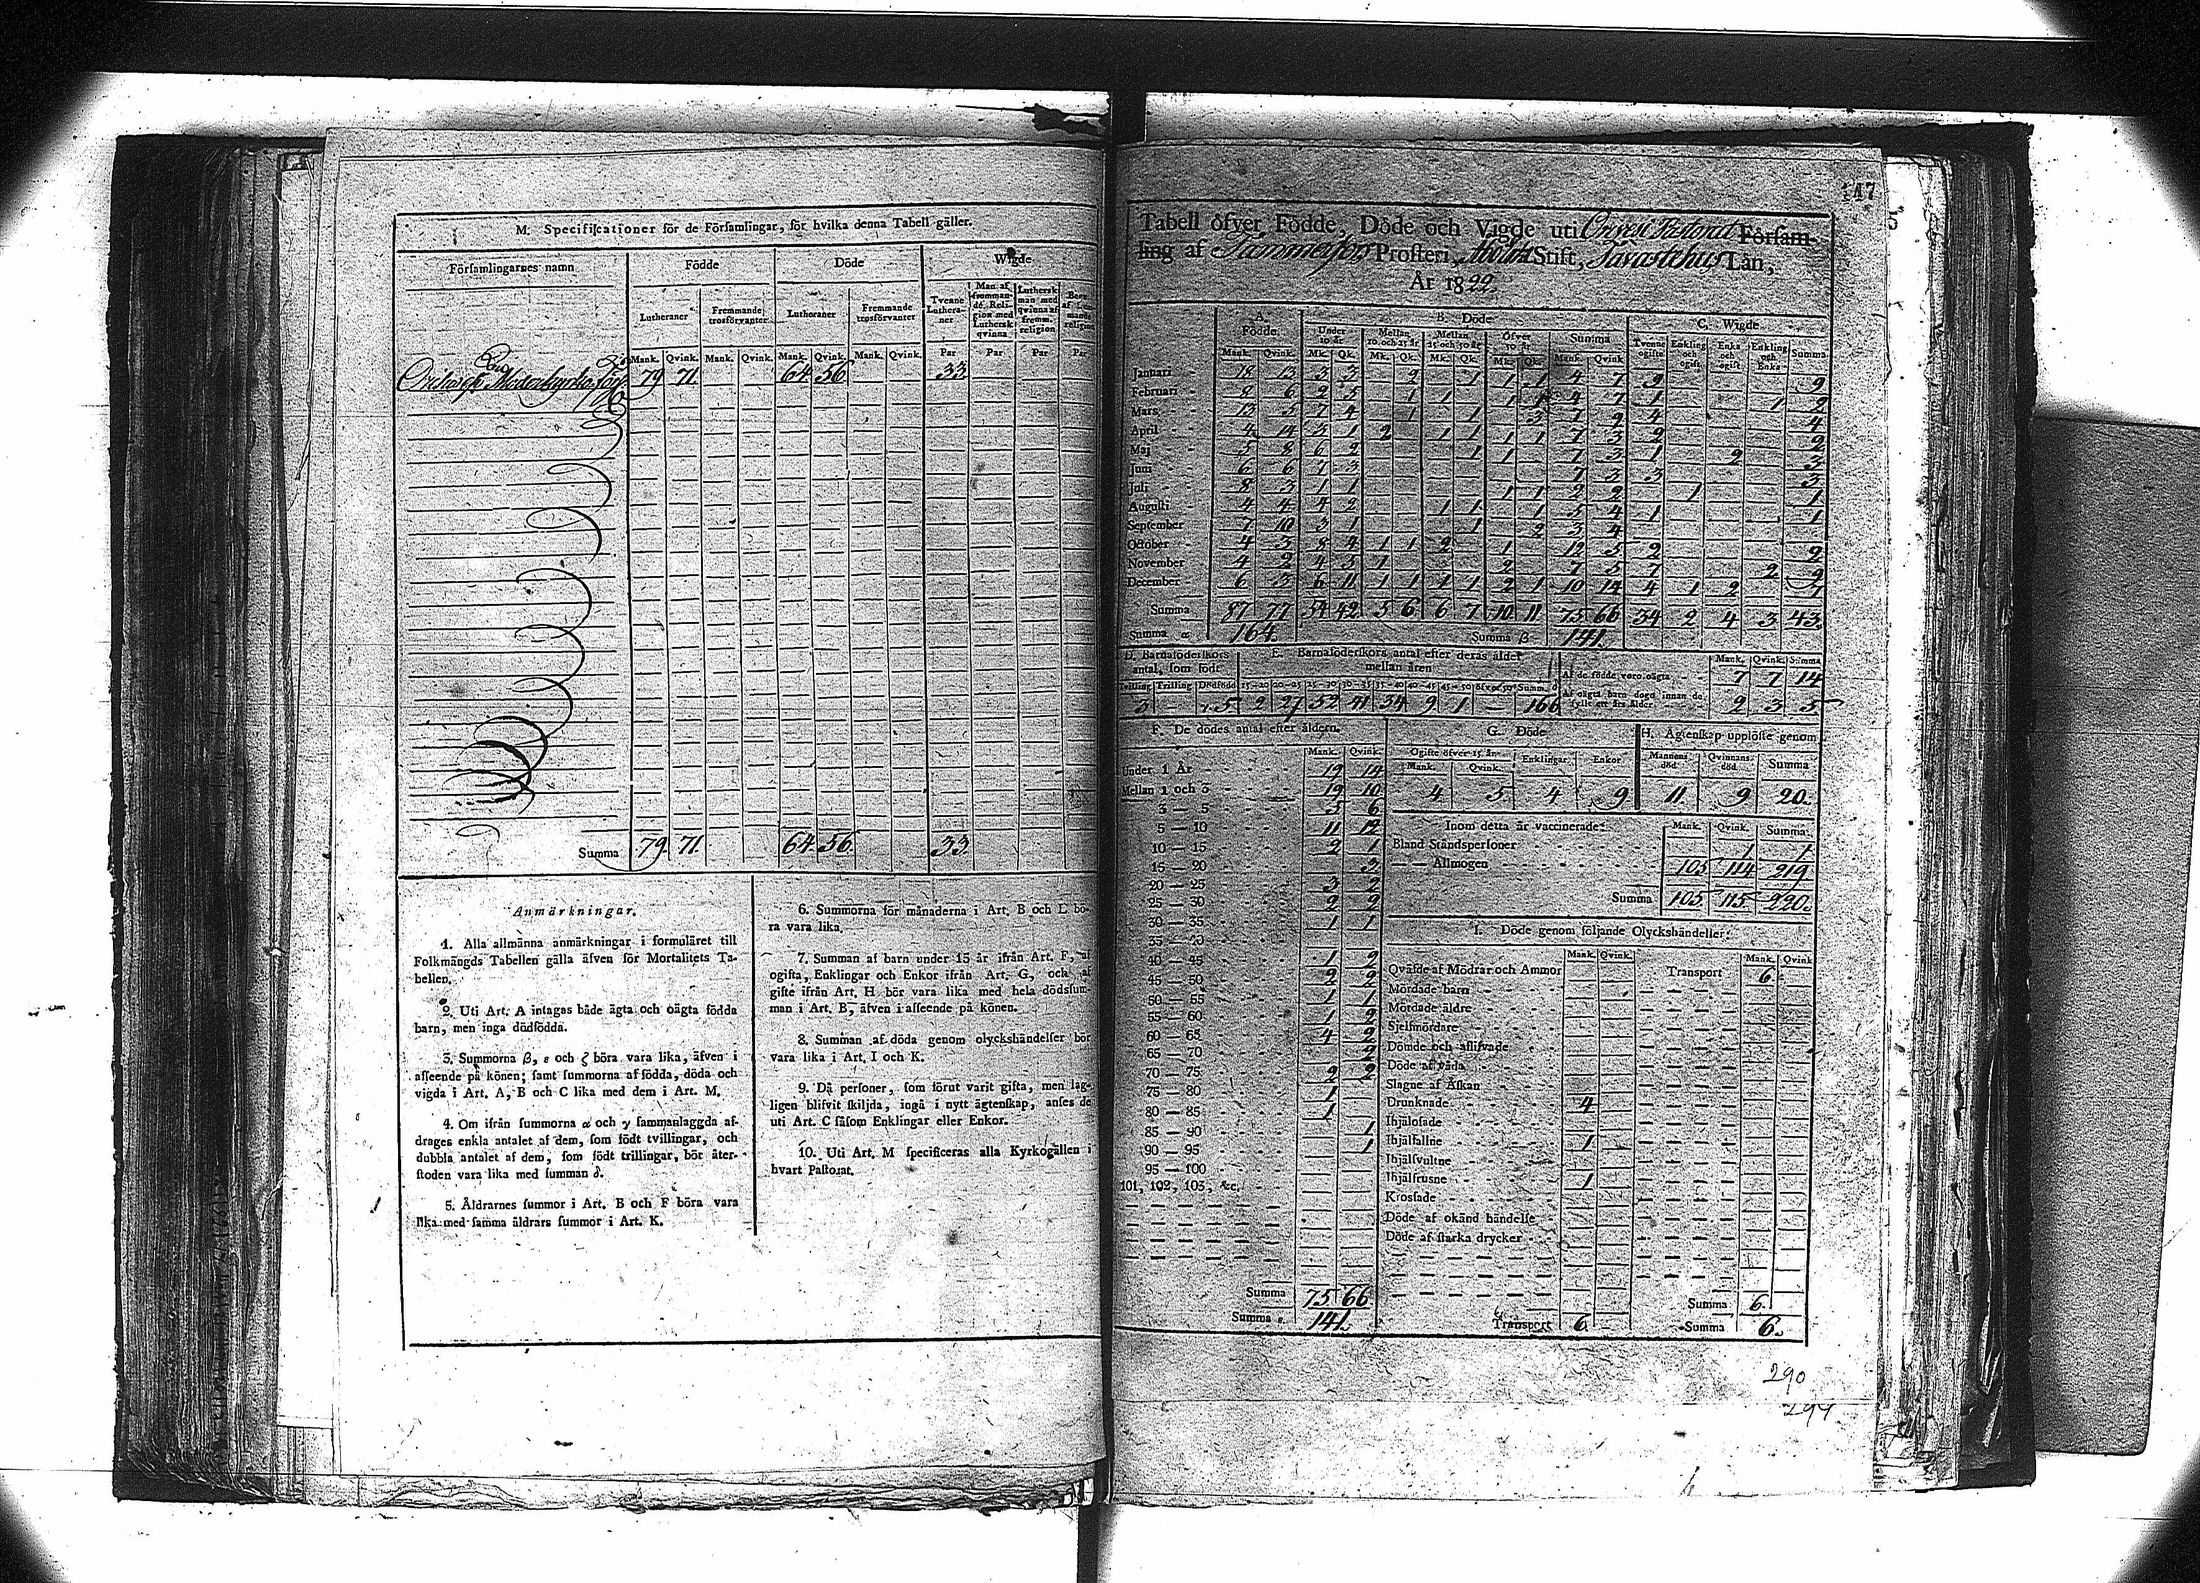 M. Specificationer för de Församlingar, för hvilka denna Tabell gäller.
Församlingarnes namn
Födde
Döde
Wigde
Lutheraner
Fremmande trosförvanter
Lutheraner
Fremmande trosförvanter
Tvenne Lutheraner
Man af fremmande Religion med Luthersk qvinna
Luthersk man med qvinna af fremm. religion
Mank. Qvink. Mank. Qvink. Mank. Qvink. Mank. Qvink. Par Par Par Par
79 71 64 56 33
Summa 79 71 64 56 33
Anmärkningar.
1. Alla allmänna anmärkningar i formuläret till
Folkmängds Tabellen gälla äfven för Mortalitets Ta-
bellen.
2. Uti Art. A intagas både ägta och oägta födda
barn, men inga dödfödda.
3. Summorna β, ε och ζ böra vara lika, äfven i
afseende på könen; samt summorna af födda, döda och
vigda i Art. A, B och C lika med dem i Art. M.
4. Om ifrån summorna α och γ sammanlaggda af-
drages enkla antalet af dem, som födt tvillingar, och
dubbla antalet af dem, som födt trillingar, bör åter-
stoden vara lika med summan δ.
5. Åldrarnes summor i Art. B och F böra vara
lika med samma åldrars summor i Art. K.
6. Summorna för månaderna i Art. B och L bö-
ra vara lika.
7. Summan af barn under 15 år ifrån Art. F, af
ogifta, Enklingar och Enkor ifrån Art. G, och af
gifte ifrån Art. H bör vara lika med hela dödssum-
man i Art. B, äfven i afseende på könen.
8. Summan af döda genom olyckshändelser bör
vara lika i Art. I och K.
9. Då personer, som förut varit gifta, men lag-
ligen blifvit skiljda, ingå i nytt ägtenskap, anses de
uti Art. C såsom Enklingar eller Enkor.
10. Uti Art. M specificeras alla Kyrkogällen i
hvart Pastorat.
147
5
Tabell öfver Födde, Döde och Vigde uti Orivesi Pastorat Försam-
ling af Tammerfors Prosteri, Åbo Stift, Tavastehus Län,
År 1822.
A. Födde.
B. Döde
C. Wigde
Under 10 år
Mellan 10 och 25 år
Mellan 25 och 50 år
Öfver 50 år
Summa
Tvenne ogifte
Enkling och ogift
Enka och ogift
Enkling och Enka
Summa
Mank. Qvink. Mk. Qk. Mk. Qk. Mk. Qk. Mk. Qk. Mank. Qvink
Januari 18 13 3 3 2 1 1 1 4 7 9 9
Februari 8 6 2 5 1 1 1 1 4 7 1 1 2
Mars 13 5 7 4 1 1 3 7 9 4 4
April 4 14 3 1 2 1 1 1 1 7 3 2 2
Maj 5 8 6 2 1 1 7 3 1 2 3
Juni 6 6 7 3 7 3 3 3
Juli 8 3 1 1 1 1 2 2 1 1
Augusti 4 4 4 2 1 1 1 5 4 1 1
September 7 10 3 1 1 2 3 4
October 4 3 8 4 1 1 2 1 12 5 2 2
November 4 2 4 5 1 2 7 5 7 2 9
December 6 3 6 11 1 1 1 1 2 1 10 14 4 1 2 7
Summa 87 77 54 42 5 6 6 7 10 11 75 66 34 2 4 3 43
Summa α 164. Summa β 141.
D. Barnaföderskors antal, som födt
E. Barnaföderskors antal efter deras ålder mellan åren
Tvilling Trilling Dödfödd 15-20 20-25 25-30 30-35 35-40 40-45 45-50 öfver 50 Summa
3 5 2 27 52 41 34 9 1 166
Mank. Qvink. Summa
Af de födde voro oägta 7 7 14
Af oägta barn dogo innan de fyllt ett års ålder 2 3 5
F. De dödes antal efter åldern.
Mank. Qvink.
Under 1 År 19 14
Mellan 1 och 3 19 10
3 — 5 5 6
5 — 10 11 12
10 — 15 2 1
15 — 20 3
20 — 25 3 2
25 — 30 2 2
30 — 35 1 1
35 — 40
40 — 45 1 2
45 — 50 2 2
50 — 55 1 1
55 — 60 1 2
60 — 65 4 2
65 — 70 2
70 — 75 2 2
75 — 80 1
80 — 85 1
85 — 90 1
90 — 95 1
95 — 100
101, 102, 103, &c.
Summa 75 66
Summa ε 141.
G. Döde
Ogifte öfver 15 år
Enklingar
Enkor
Mank. Qvink.
4 5 4 9
H. Ägtenskap upplöste genom
Mannens död. Qvinnans död. Summa
11 9 20.
Inom detta år vaccinerade:
Mank. Qvink. Summa.
Bland Ståndspersoner 1 1
— — Allmogen 105 114 219
Summa 105 115 220.
I. Döde genom följande Olyckshändelser:
Mank. Qvink. Mank. Qvink
Qväfde af Mödrar och Ammor
Transport 6
Mördade barn
Mördade äldre
Sjelfmördare
Dömde och aflifvade
Döde af våda
Slagne af Åskan
Drunknade 4
Ihjälosade
Ihjälfallne 1
Ihjälsvultne
Ihjälfrusne 1
Krossade
Döde af okänd händelse
Döde af starka drycker
Summa 6.
Transport 6
Summa 6.
290
294